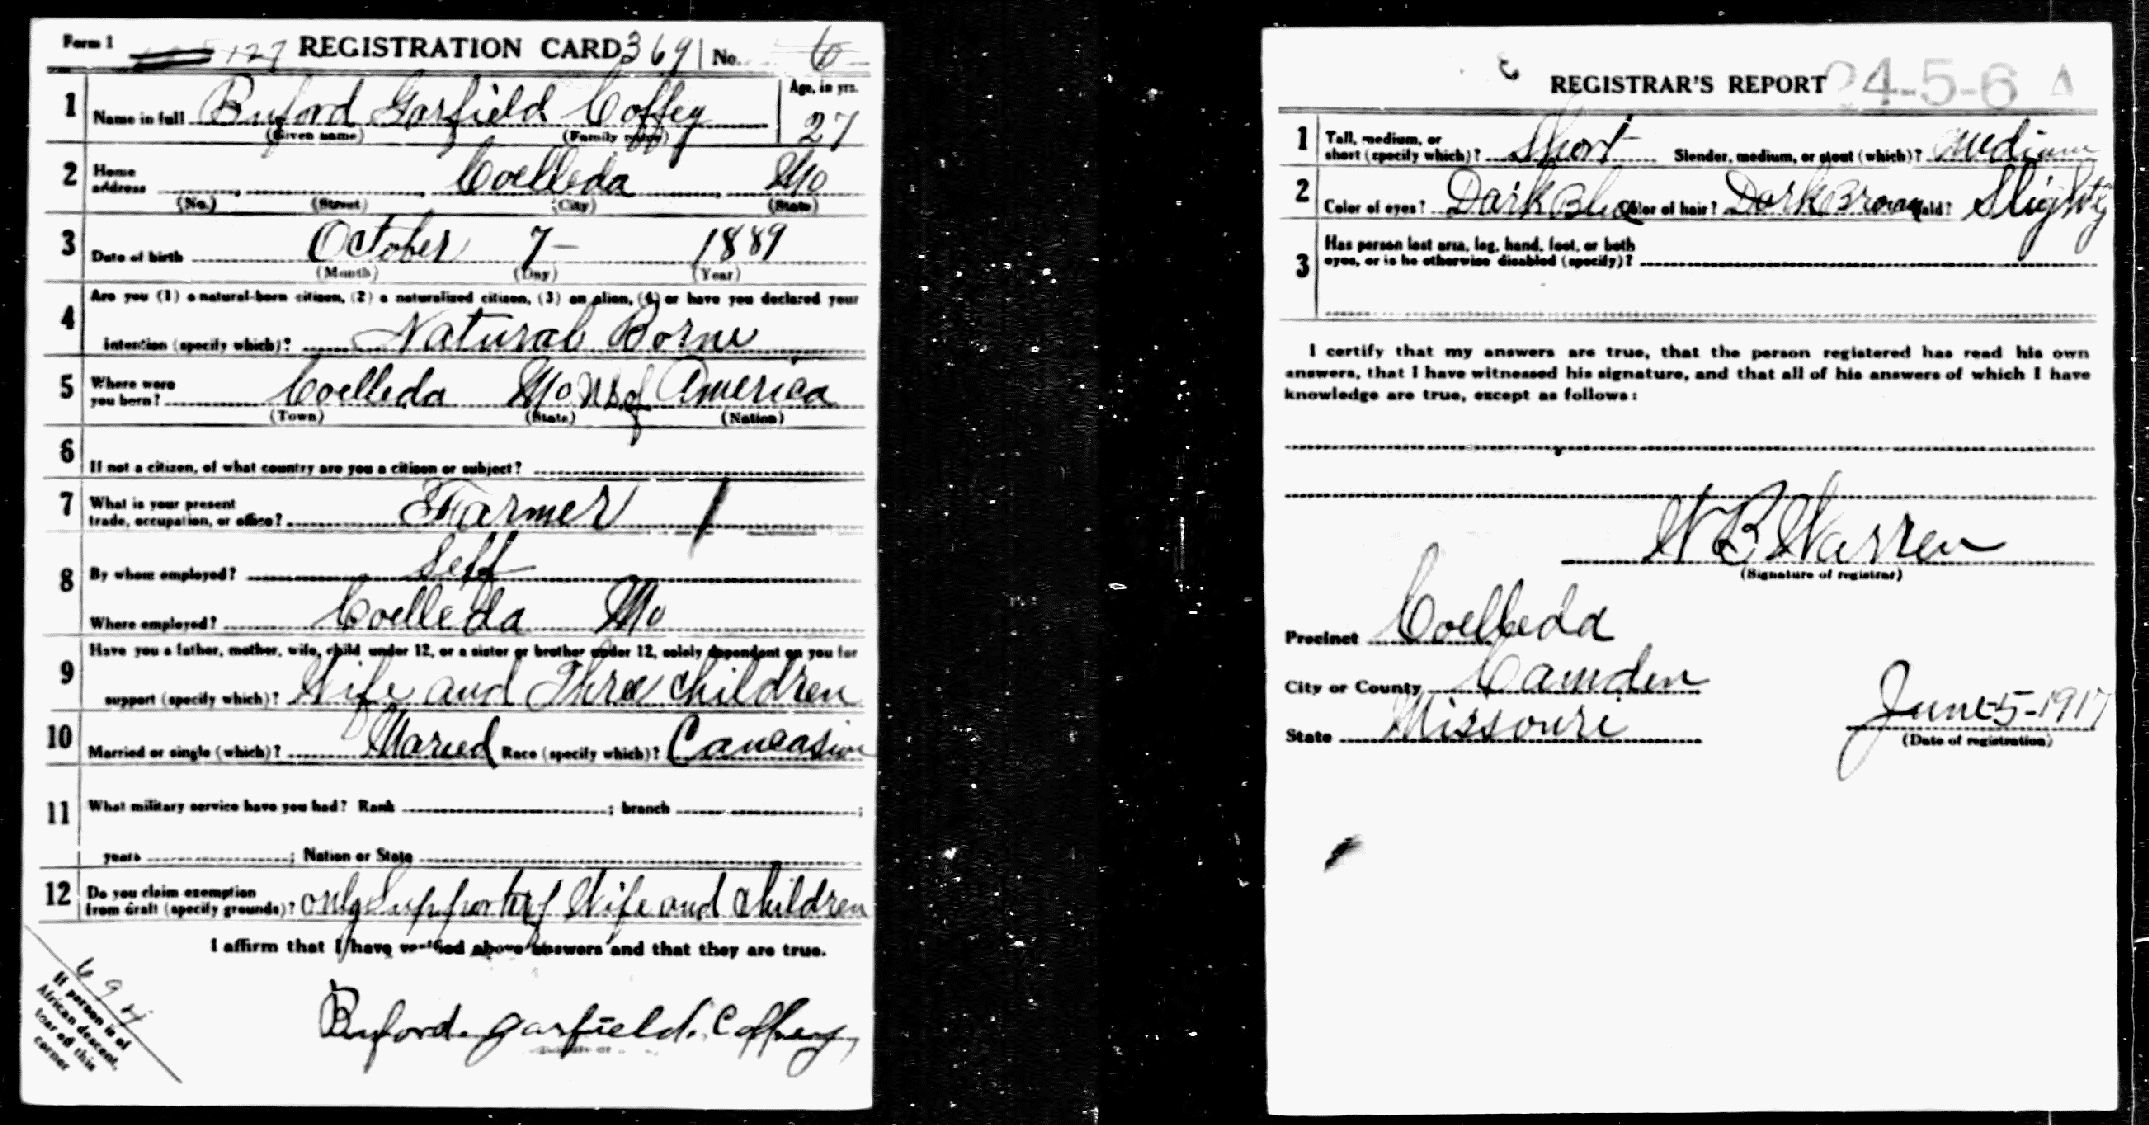 Form 1 127 REGISTRATION CARD 369 No. 6
1 Name in full Buford Garfield Coffey Age, in yrs. 27
(Given name) (Family name)
2 Home address Coelleda Mo
(No.) (Street) (City) (State)
3 Date of birth October 7 - 1889
(Month) (Day) (Year)
4 Are you (1) a natural-born citizen, (2) a naturalized citizen, (3) an alien, (4) or have you declared your
intention (specify which)? Natural Borne
5 Where were
you born? Coelleda Mo US of America
(Town) (State) (Nation)
6 If not a citizen, of what country are you a citizen or subject?
7 What is your present
trade, occupation, or office? Farmer
8 By whom employed? Self
Where employed? Coelleda Mo
9 Have you a father, mother, wife, child under 12, or a sister or brother under 12, solely dependent on you for
support (specify which)? Wife and Three children
10 Married or single (which)? Maried Race (specify which)? Caucasian
11 What military service have you had? Rank ; branch ;
years ; Nation or State
12 Do you claim exemption
from draft (specify grounds)? only Support of Wife and children
I affirm that I have verified above answers and that they are true.
Buford. Garfield. Coffey
694
If person is of
African descent,
tear off this
corner
REGISTRAR'S REPORT 24-5-6 A
1 Tall, medium, or
short (specify which)? Short Slender, medium, or stout (which)? Medium
2 Color of eyes? Dark Blue Color of hair? Dark Brown Bald? Slighty
3 Has person lost arm, leg, hand, foot, or both
eyes, or is he otherwise disabled (specify)?
I certify that my answers are true, that the person registered has read his own
answers, that I have witnessed his signature, and that all of his answers of which I have
knowledge are true, except as follows:
W B Warren
(Signature of registrar)
Precinct Coelleda
City or County Camden
State Missouri
June-5-1917
(Date of registration)